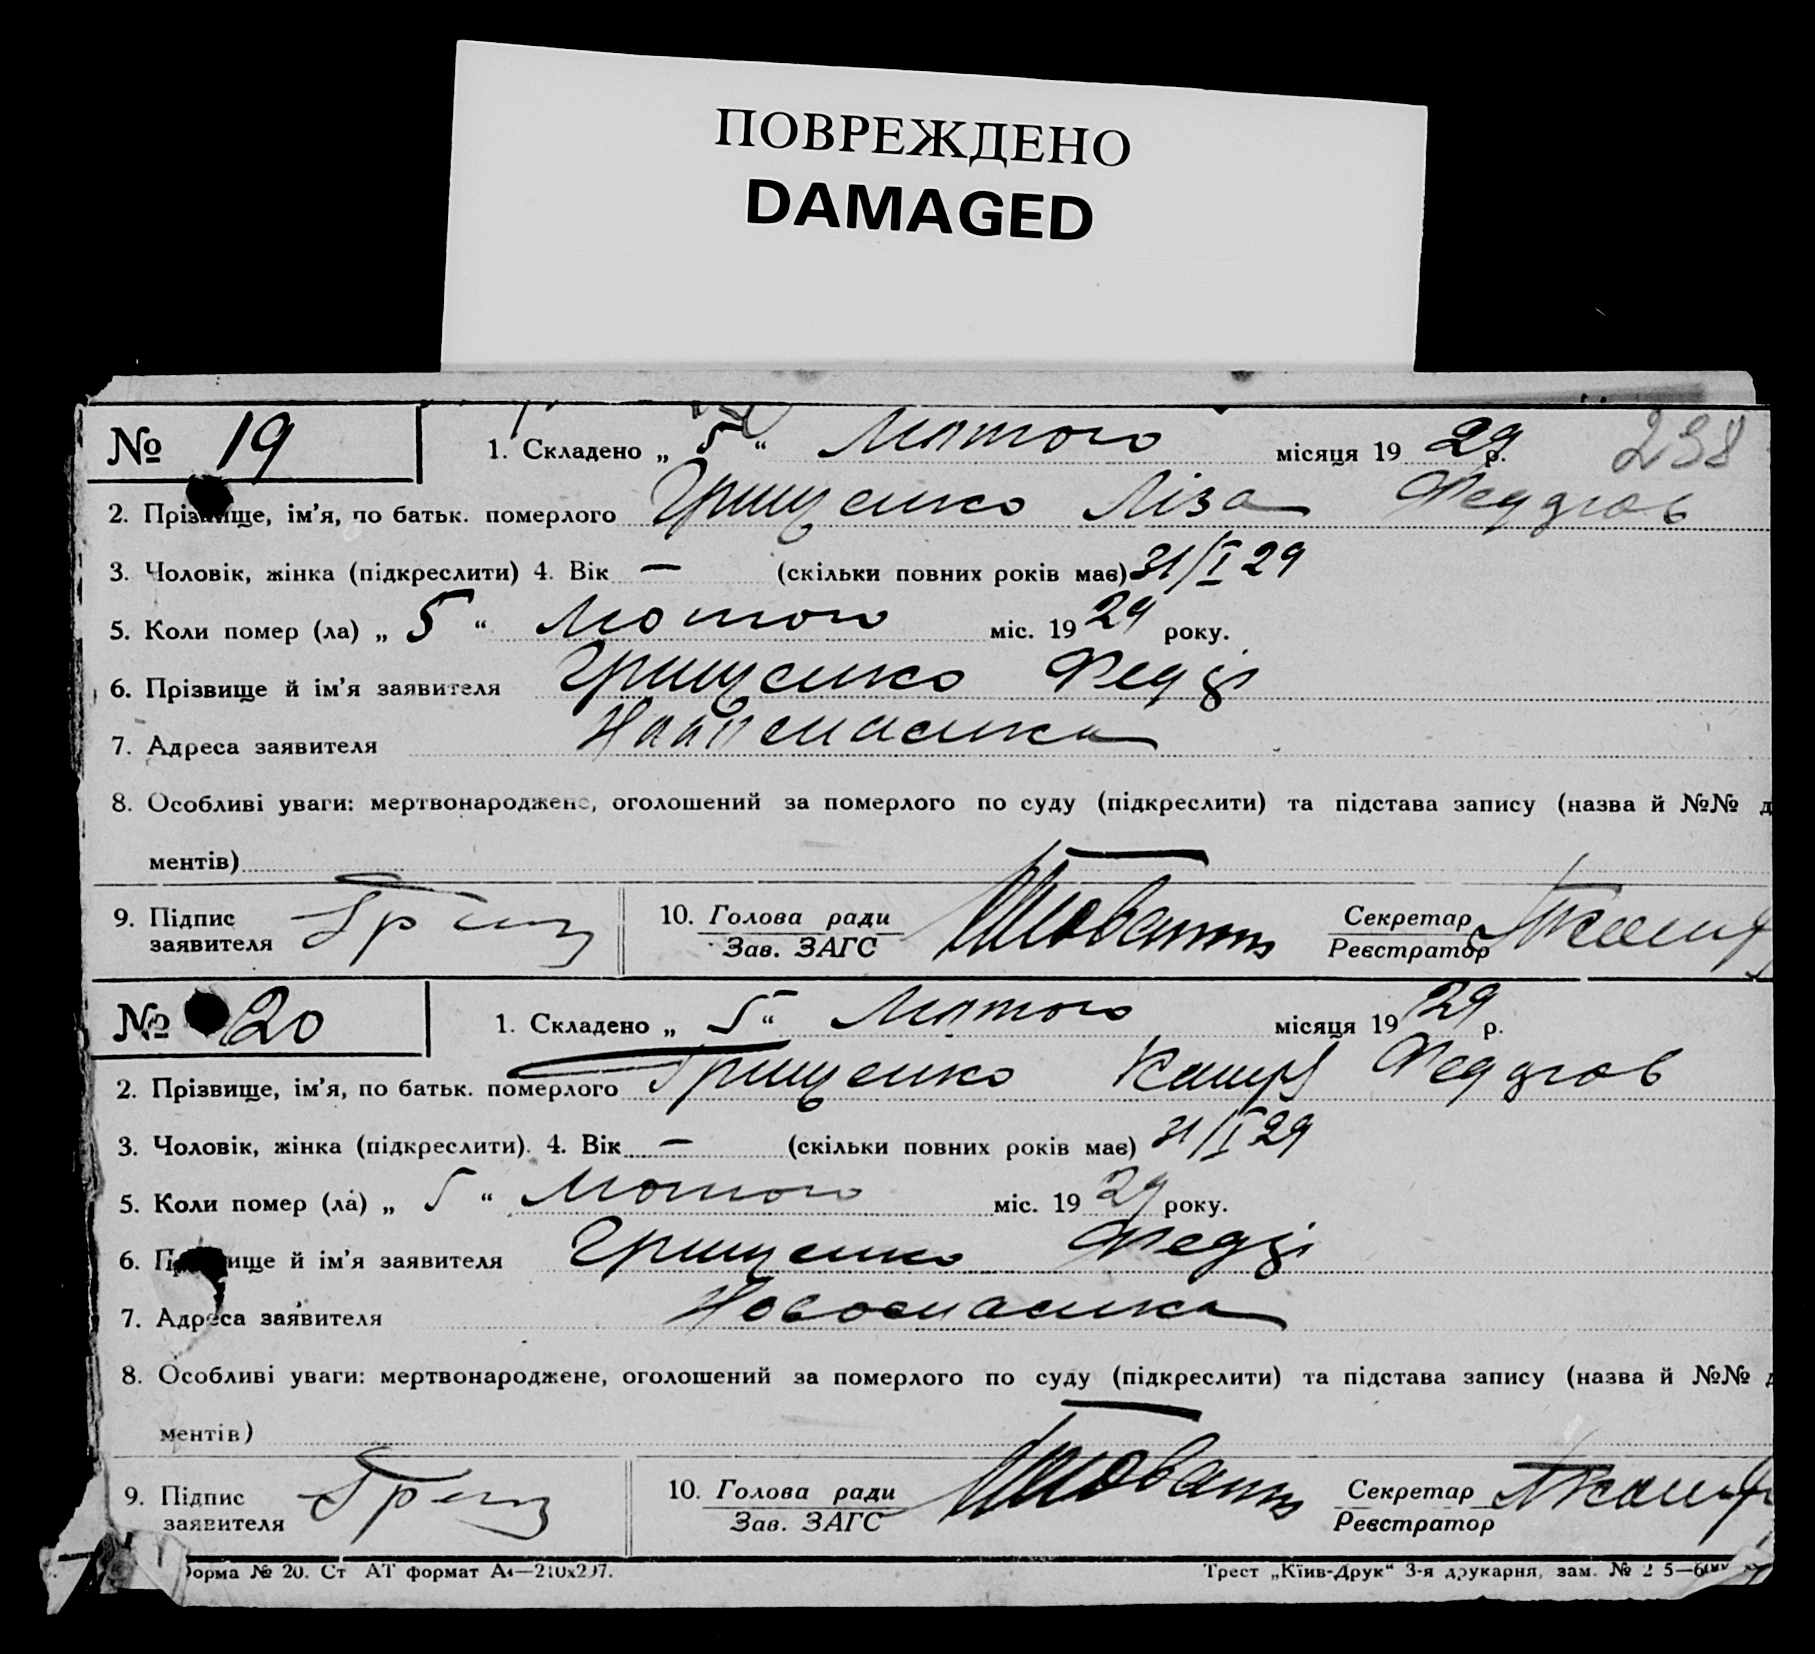 ПОВРЕЖДЕНО
DAMAGED
№ 19 1. Складено „ 5 “ Лютого місяця 19 29 р. 238
2. Прізвище, ім'я, по батьк. померлого Грищенко Ліза
3. Чоловік, жінка (підкреслити) 4. Вік — (скільки повних років має) 31/I 29
5. Коли помер (ла) „ 5 “ Лютого міс. 19 29 року.
6. Прізвище й ім'я заявителя Грищенко
7. Адреса заявителя
8. Особливі уваги: мертвонароджене, оголошений за померлого по суду (підкреслити) та підстава запису (назва й №№ д
ментів)
9. Підпис заявителя 10. Голова ради Секретар
Зав. ЗАГС Реєстратор
№ 20 1. Складено „ 5 “ Лютого місяця 19 29 р.
2. Прізвище, ім'я, по батьк. померлого Грищенко
3. Чоловік, жінка (підкреслити). 4. Вік — (скільки повних років має) 31/I 29
5. Коли помер (ла) „ 5 “ Лютого міс. 19 29 року.
6. Прізвище й ім'я заявителя Грищенко
7. Адреса заявителя
8. Особливі уваги: мертвонароджене, оголошений за померлого по суду (підкреслити) та підстава запису (назва й №№ д
ментів)
9. Підпис заявителя 10. Голова ради Секретар
Зав. ЗАГС Реєстратор
форма № 20. Ст АТ формат А4—210x297. Трест „Київ-Друк“ 3-я друкарня, зам. №